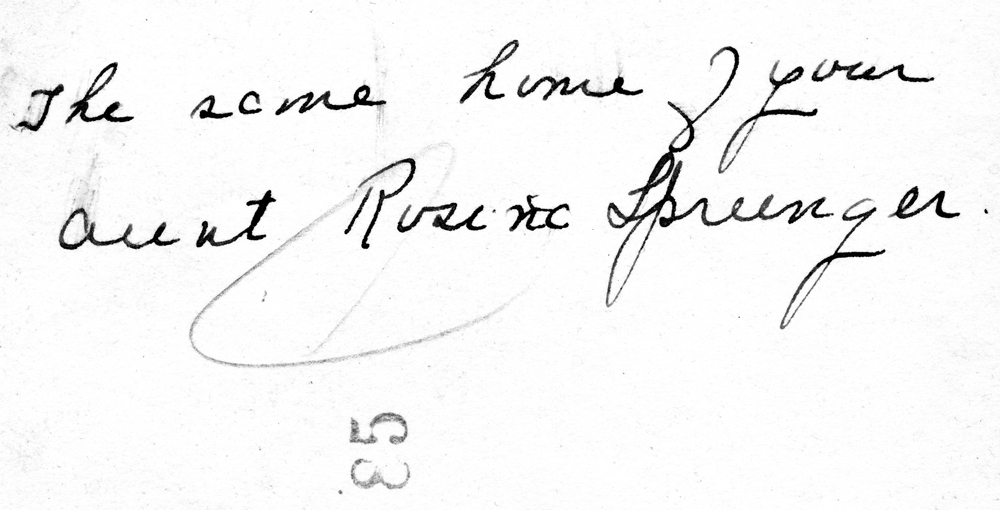 The same home of your
aunt Rosina Sprunger.
35